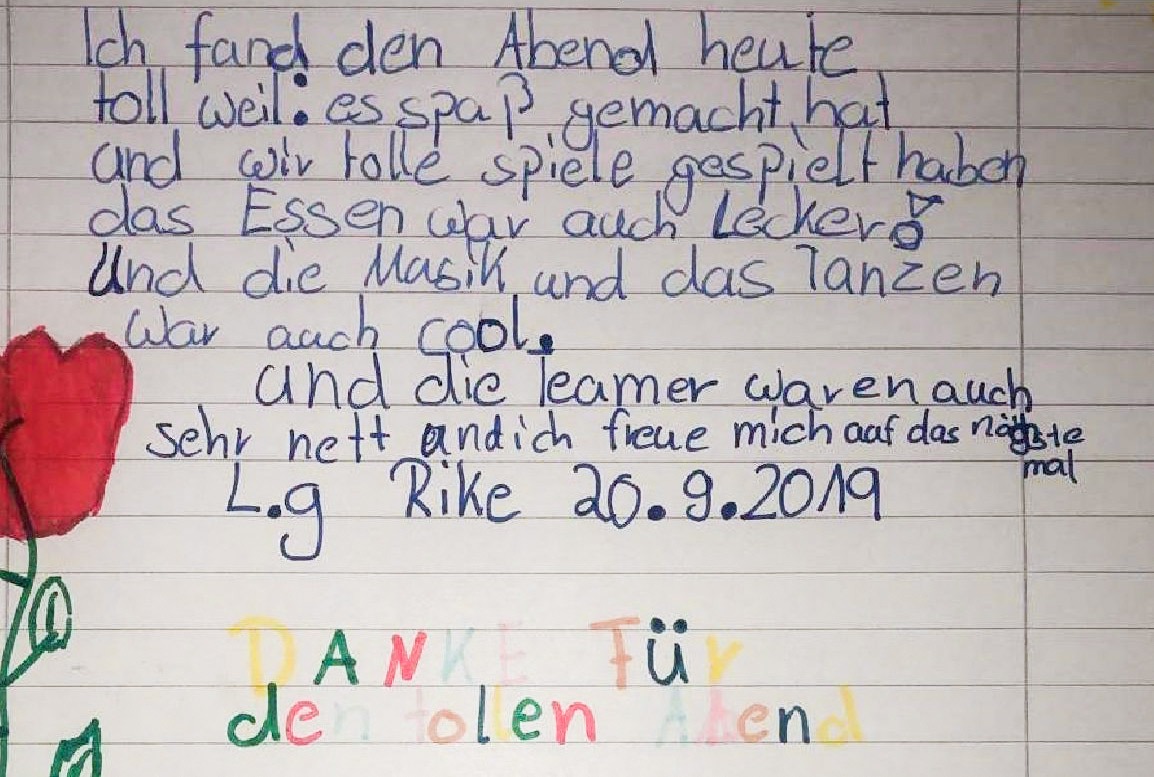 Ich fand den Abend heute
toll weil: es spaß gemacht hat
und wir tolle spiele gespielt haben
das Essen war auch Lecker!
Und die Musik und das Tanzen
war auch cool.
und die Teamer waren auch
sehr nett und ich freue mich auf das nägste
mal
L.g Rike 20.9.2019
DANKE Für
den tollen Abend